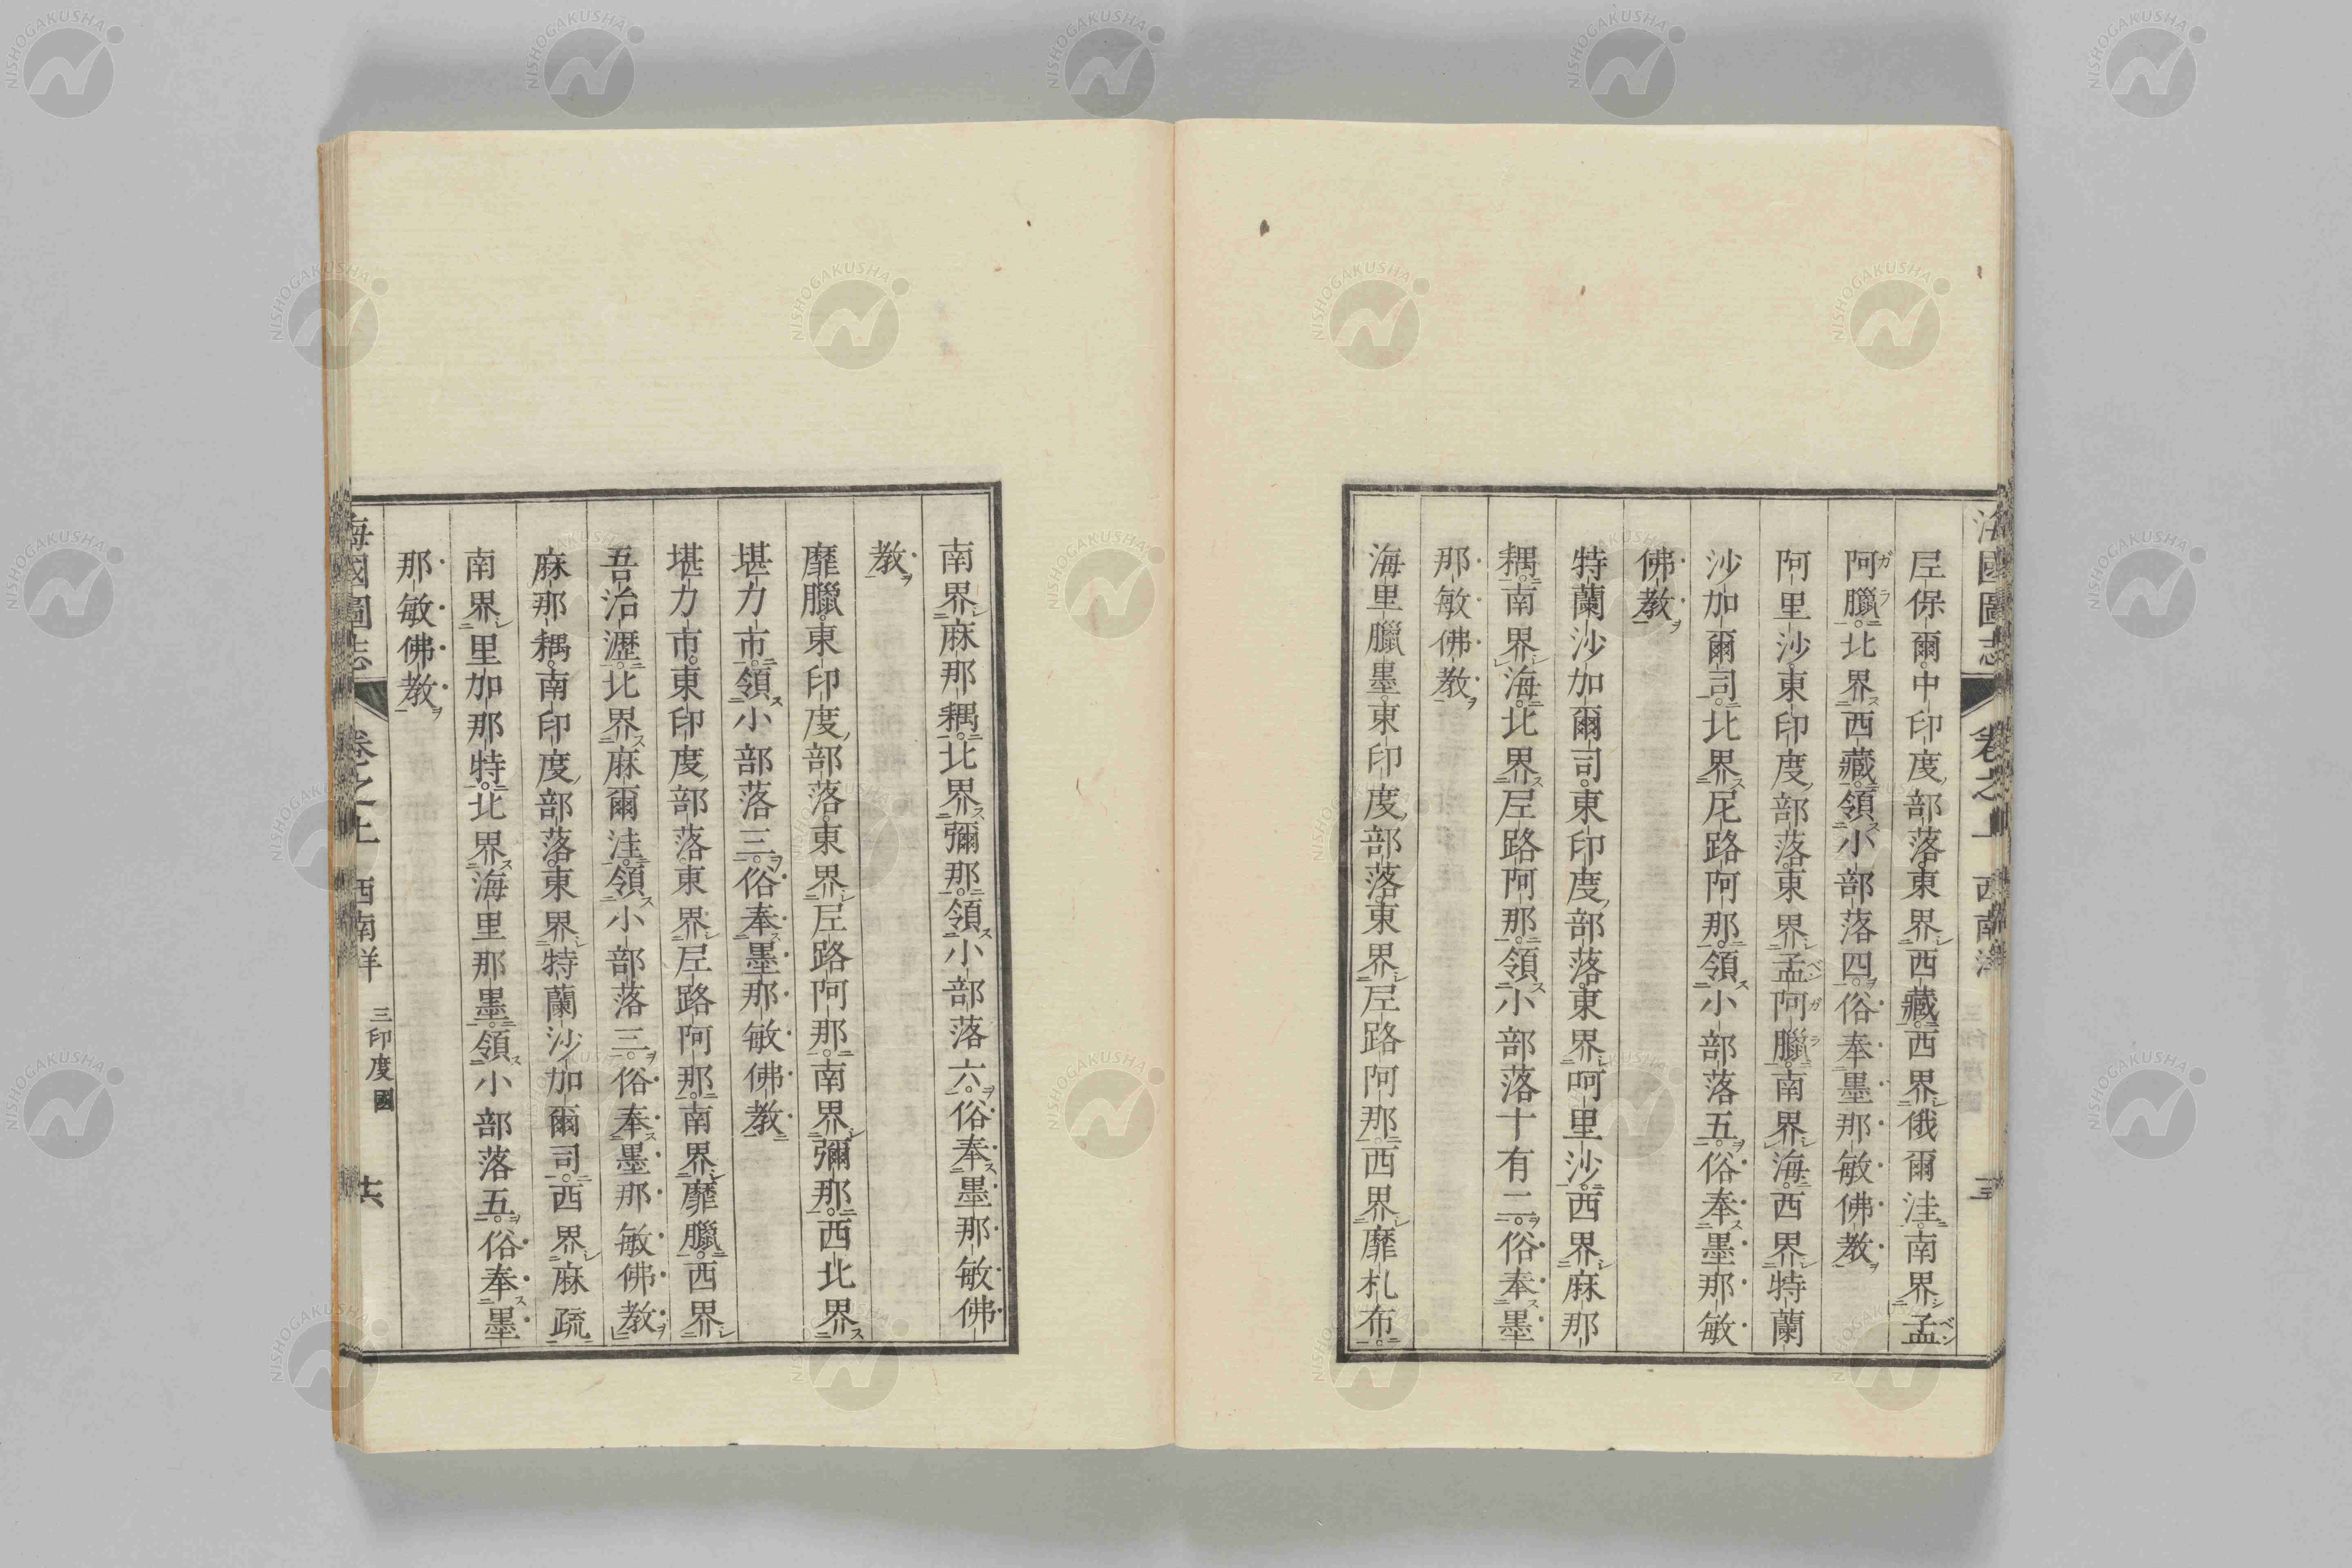 尼保爾中印度部落東界西藏西界俄爾洼南界孟
阿臘北界西藏領小部落四俗奉墨那敏佛教
阿里沙東印度部落東界孟阿臘南界海西界特蘭
沙加爾司北界尼路阿那領小部落五俗奉墨那敏
佛教
特蘭沙加爾司東印度部落東界呵里沙西界麻那
耦南界海北界尼路阿那領小部落十有二俗奉墨
那敏佛教
海里臘墨東印度部落東界尼路阿那西界靡札布
南界麻那耦北界彌那領小部落六俗奉墨那敏佛
教
靡臘東印度部落東界尼路阿那南界彌那西北界
堪力市領小部落三俗奉墨那敏佛教
堪力市東印度部落東界尼路阿那南界靡臘西界
吾治瀝北界麻爾洼領小部落三俗奉墨那敏佛教
麻那耦南印度部落東界特蘭沙加爾司西界麻疏
南界里加那特北界海里那墨領小部落五俗奉墨
那敏佛教
海國圖志 卷之上 西南洋 三印度國 十六
NISHOGAKUSHA